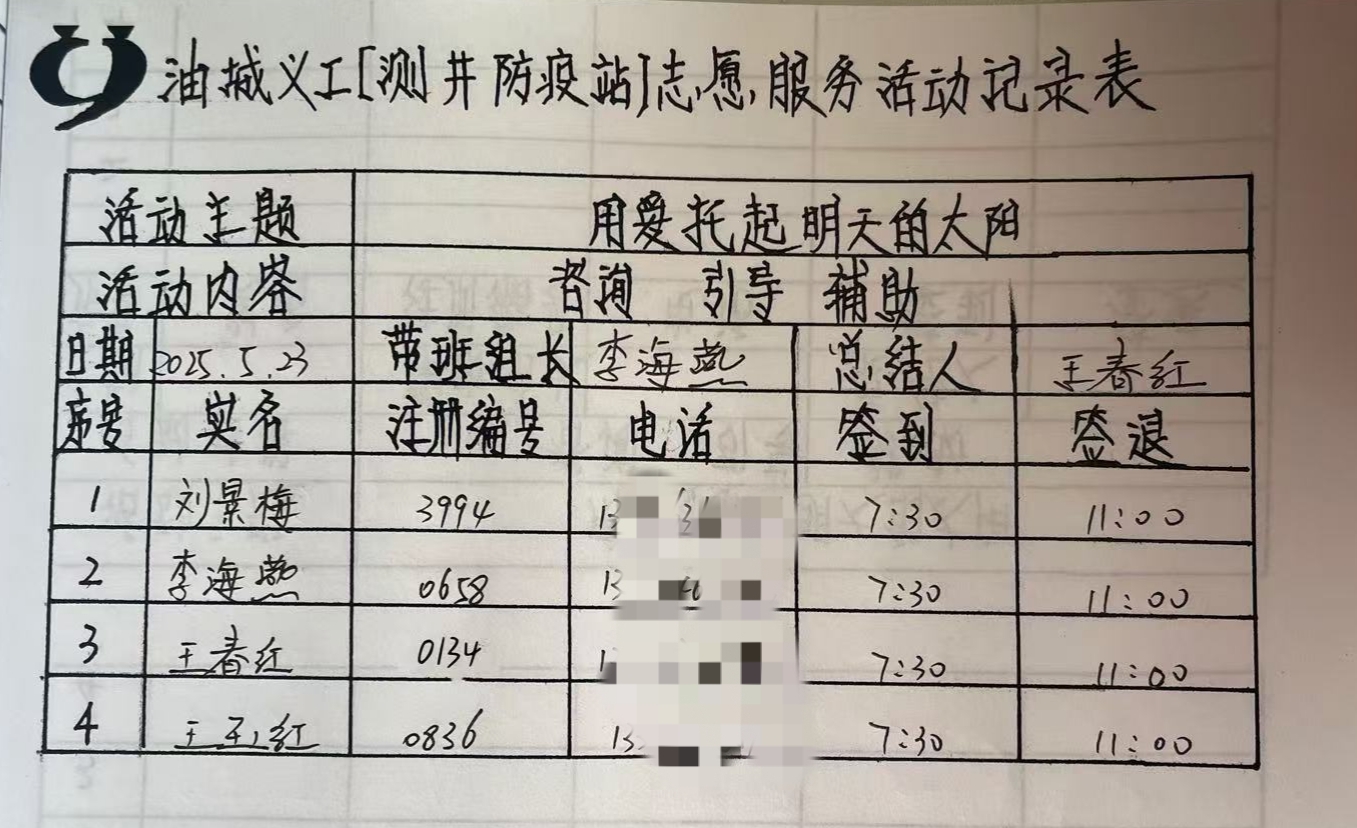 油城义工[测井防疫站]志愿服务活动记录表
活动主题 用爱托起明天的太阳
活动内容 咨询 引导 辅助
日期 2025.5.23 带班组长 李海燕 总结人 王春红
序号 实名 注册编号 电话 签到 签退
1 刘景梅 3994 13 7:30 11:00
2 李海燕 0658 13 7:30 11:00
3 王春红 0134 1 7:30 11:00
4 红 0836 13 7:30 11:00